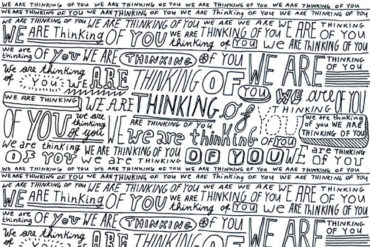 WE ARE THINKING OF YOU WE ARE THINKING OF YOU WE ARE THINKING OF YOU WE ARE THINKING
THINKING OF YOU WE ARE THINKING OF YOU WE ARE WE ARE THINKING OF YOU
WE ARE Thinking OF YOU WE ARE THINKING OF YOU WE ARE OF YOU
we are thinking of YOU WE ARE THINKING OF YOU thinking of YOU WE ARE THINKING OF YOU
We are thinking of You WE ARE THINKING OF YOU WE ARE OF YOU
WE ARE THINKING WE ARE THINKING of THINKING
OF YOU we are thinking of you ARE THINKING OF YOU WE we are thinking of YOU we are thinking of YOU WE ARE THINKING OF YOU
we are OF YOU we are THINKING OF YOU WE ARE OF YOU
WE ARE THINKING OF YOU WE ARE THINKING OF YOU WE ARE THINKING
WE ARE Thinking OF YOU WE ARE THINKING OF YOU
of YOU WE ARE THINKING OF YOU thinking of YOU WE ARE THINKING OF YOU
We are thinking ARE THINKING